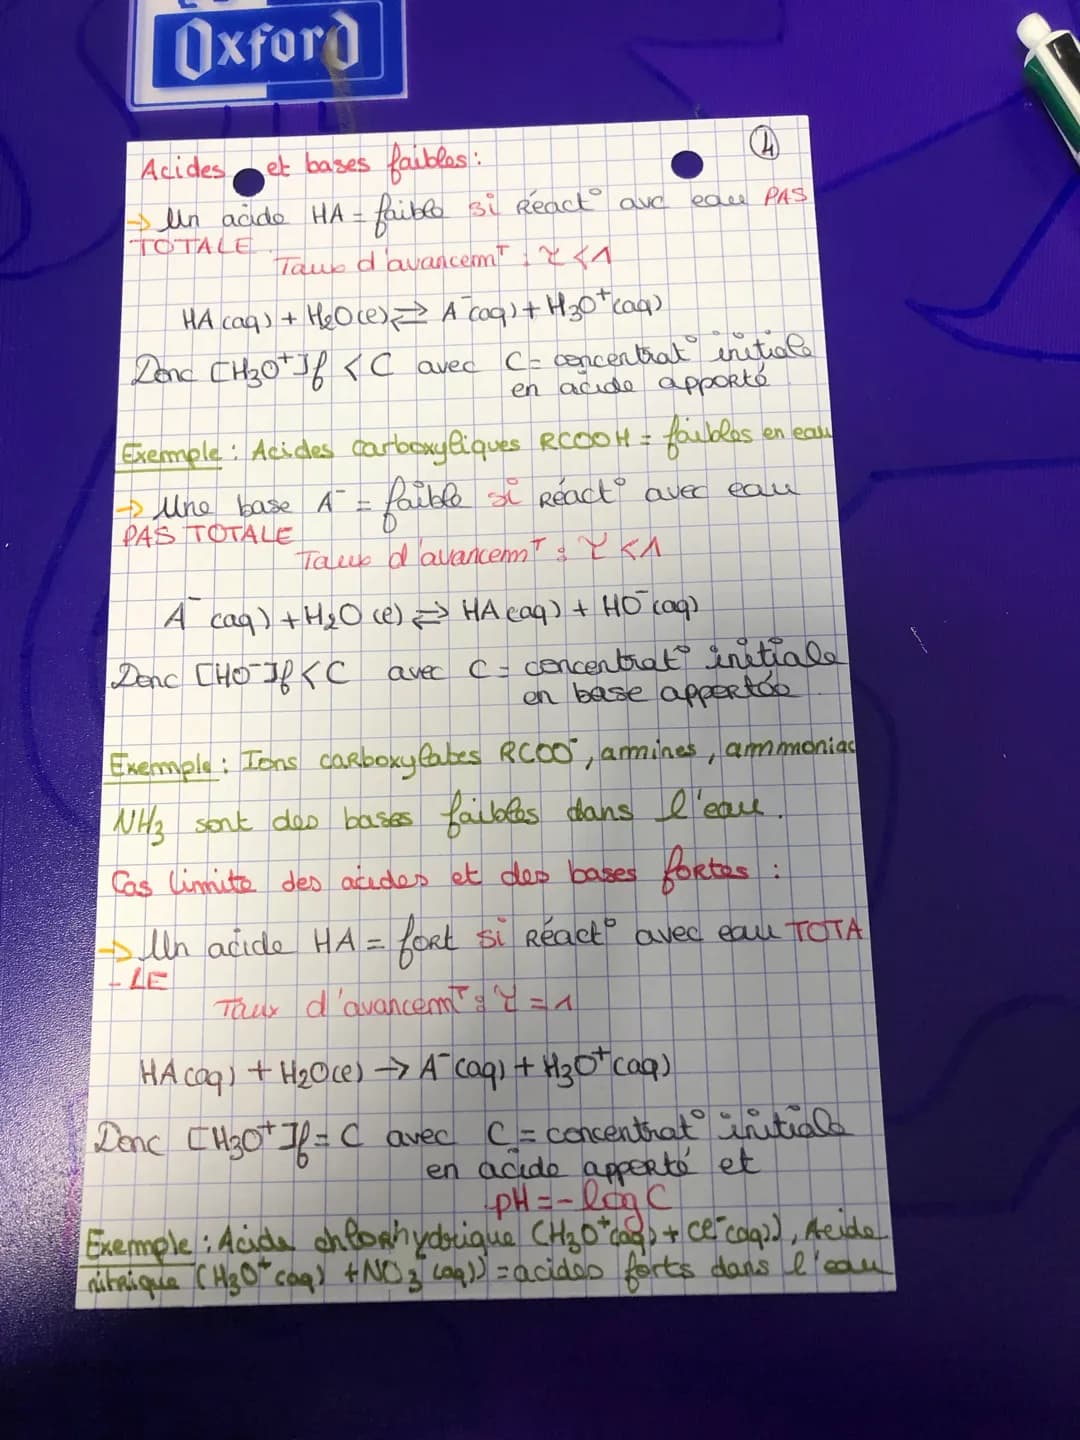 Oxford
4
Acides et bases faibles :
→ Un acide HA = faible si Réact° avc eau PAS
TOTALE
Taux d'avancemᵀ : τ < 1
HA (aq) + H₂O (l) ⇌ A⁻(aq) + H₃O⁺(aq)
Donc [H₃O⁺]f < C avec C = concentrat° initiale
en acide apporté
Exemple : Acides carboxyliques RCOOH = faibles en eau
→ Une base A⁻ = faible si Réact° avec eau
PAS TOTALE
Taux d'avancemᵀ : τ < 1
A⁻ (aq) + H₂O (l) ⇌ HA (aq) + HO⁻(aq)
Donc [HO⁻]f < C avec C = concentrat° initiale
en base apportée
Exemple : Ions carboxylates RCOO⁻, amines, ammoniac
NH₃ sont des bases faibles dans l'eau.
Cas limite des acides et des bases fortes :
→ Un acide HA = fort si Réact° avec eau TOTA
- LE
Taux d'avancemᵀ : τ = 1
HA (aq) + H₂O (l) → A⁻(aq) + H₃O⁺(aq)
Donc [H₃O⁺]f = C avec C = concentrat° initiale
en acide apporté et
pH = - log C
Exemple : Acide chlorhydrique (H₃O⁺(aq) + Cl⁻(aq)), Acide
nitrique (H₃O⁺(aq) + NO₃⁻(aq)) = acides forts dans l'eau